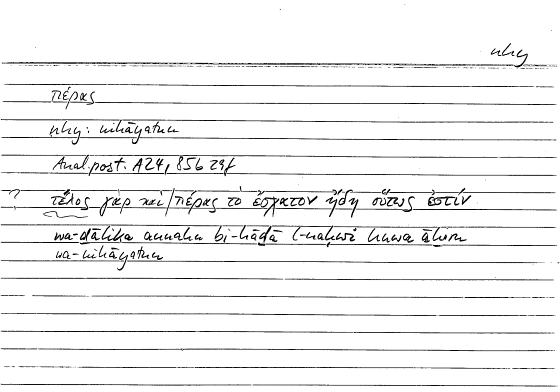 nhy
πέρας
nhy: nihāyatun
Anal. post. A24, 85b 29f
? τέλος γὰρ καὶ/πέρας τὸ ἔσχατον ἤδη οὕτως ἐστίν
wa-ḏālika annahu bi-hāḏā l-naḥwi huwa āḫirun
wa-nihāyatun